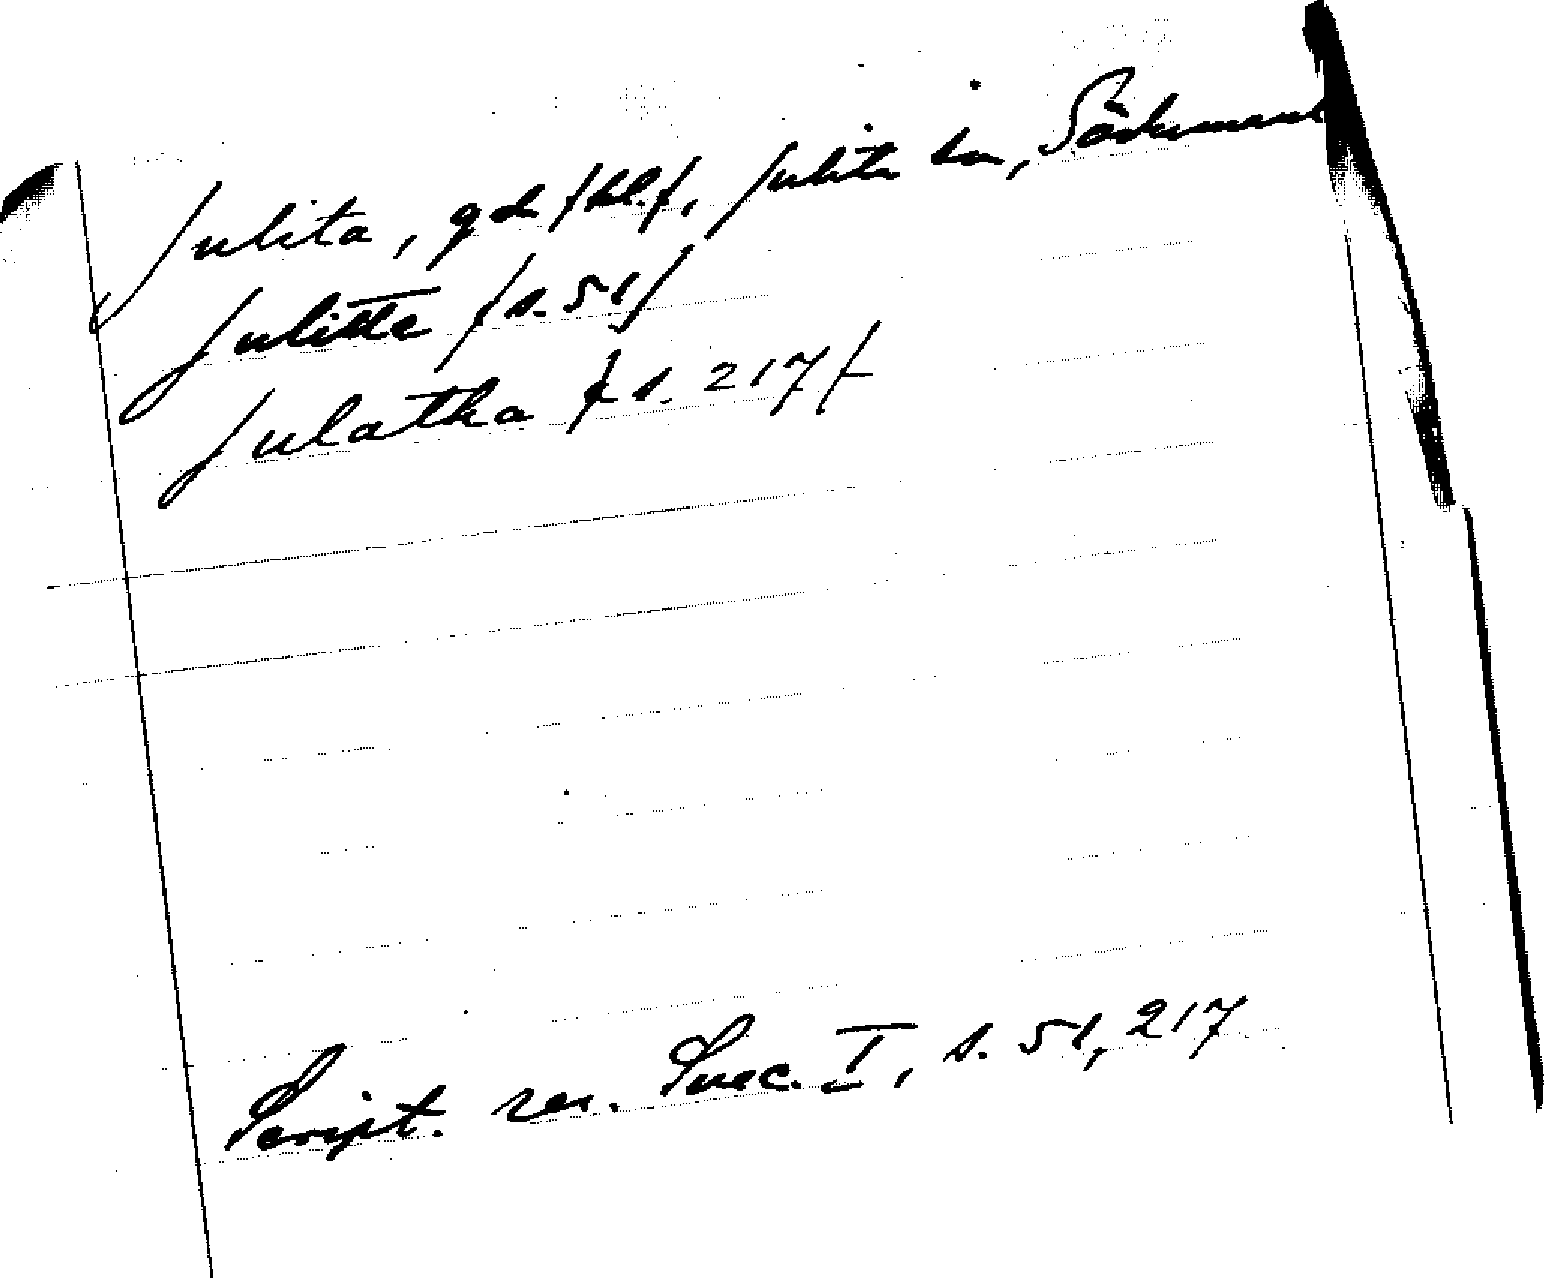 Julita, gd /kl./, Julita sn, Södermanl
Julitte /s. 51/
Julatha /s. 217/
Script. rer. Svec. I, s. 51, 217